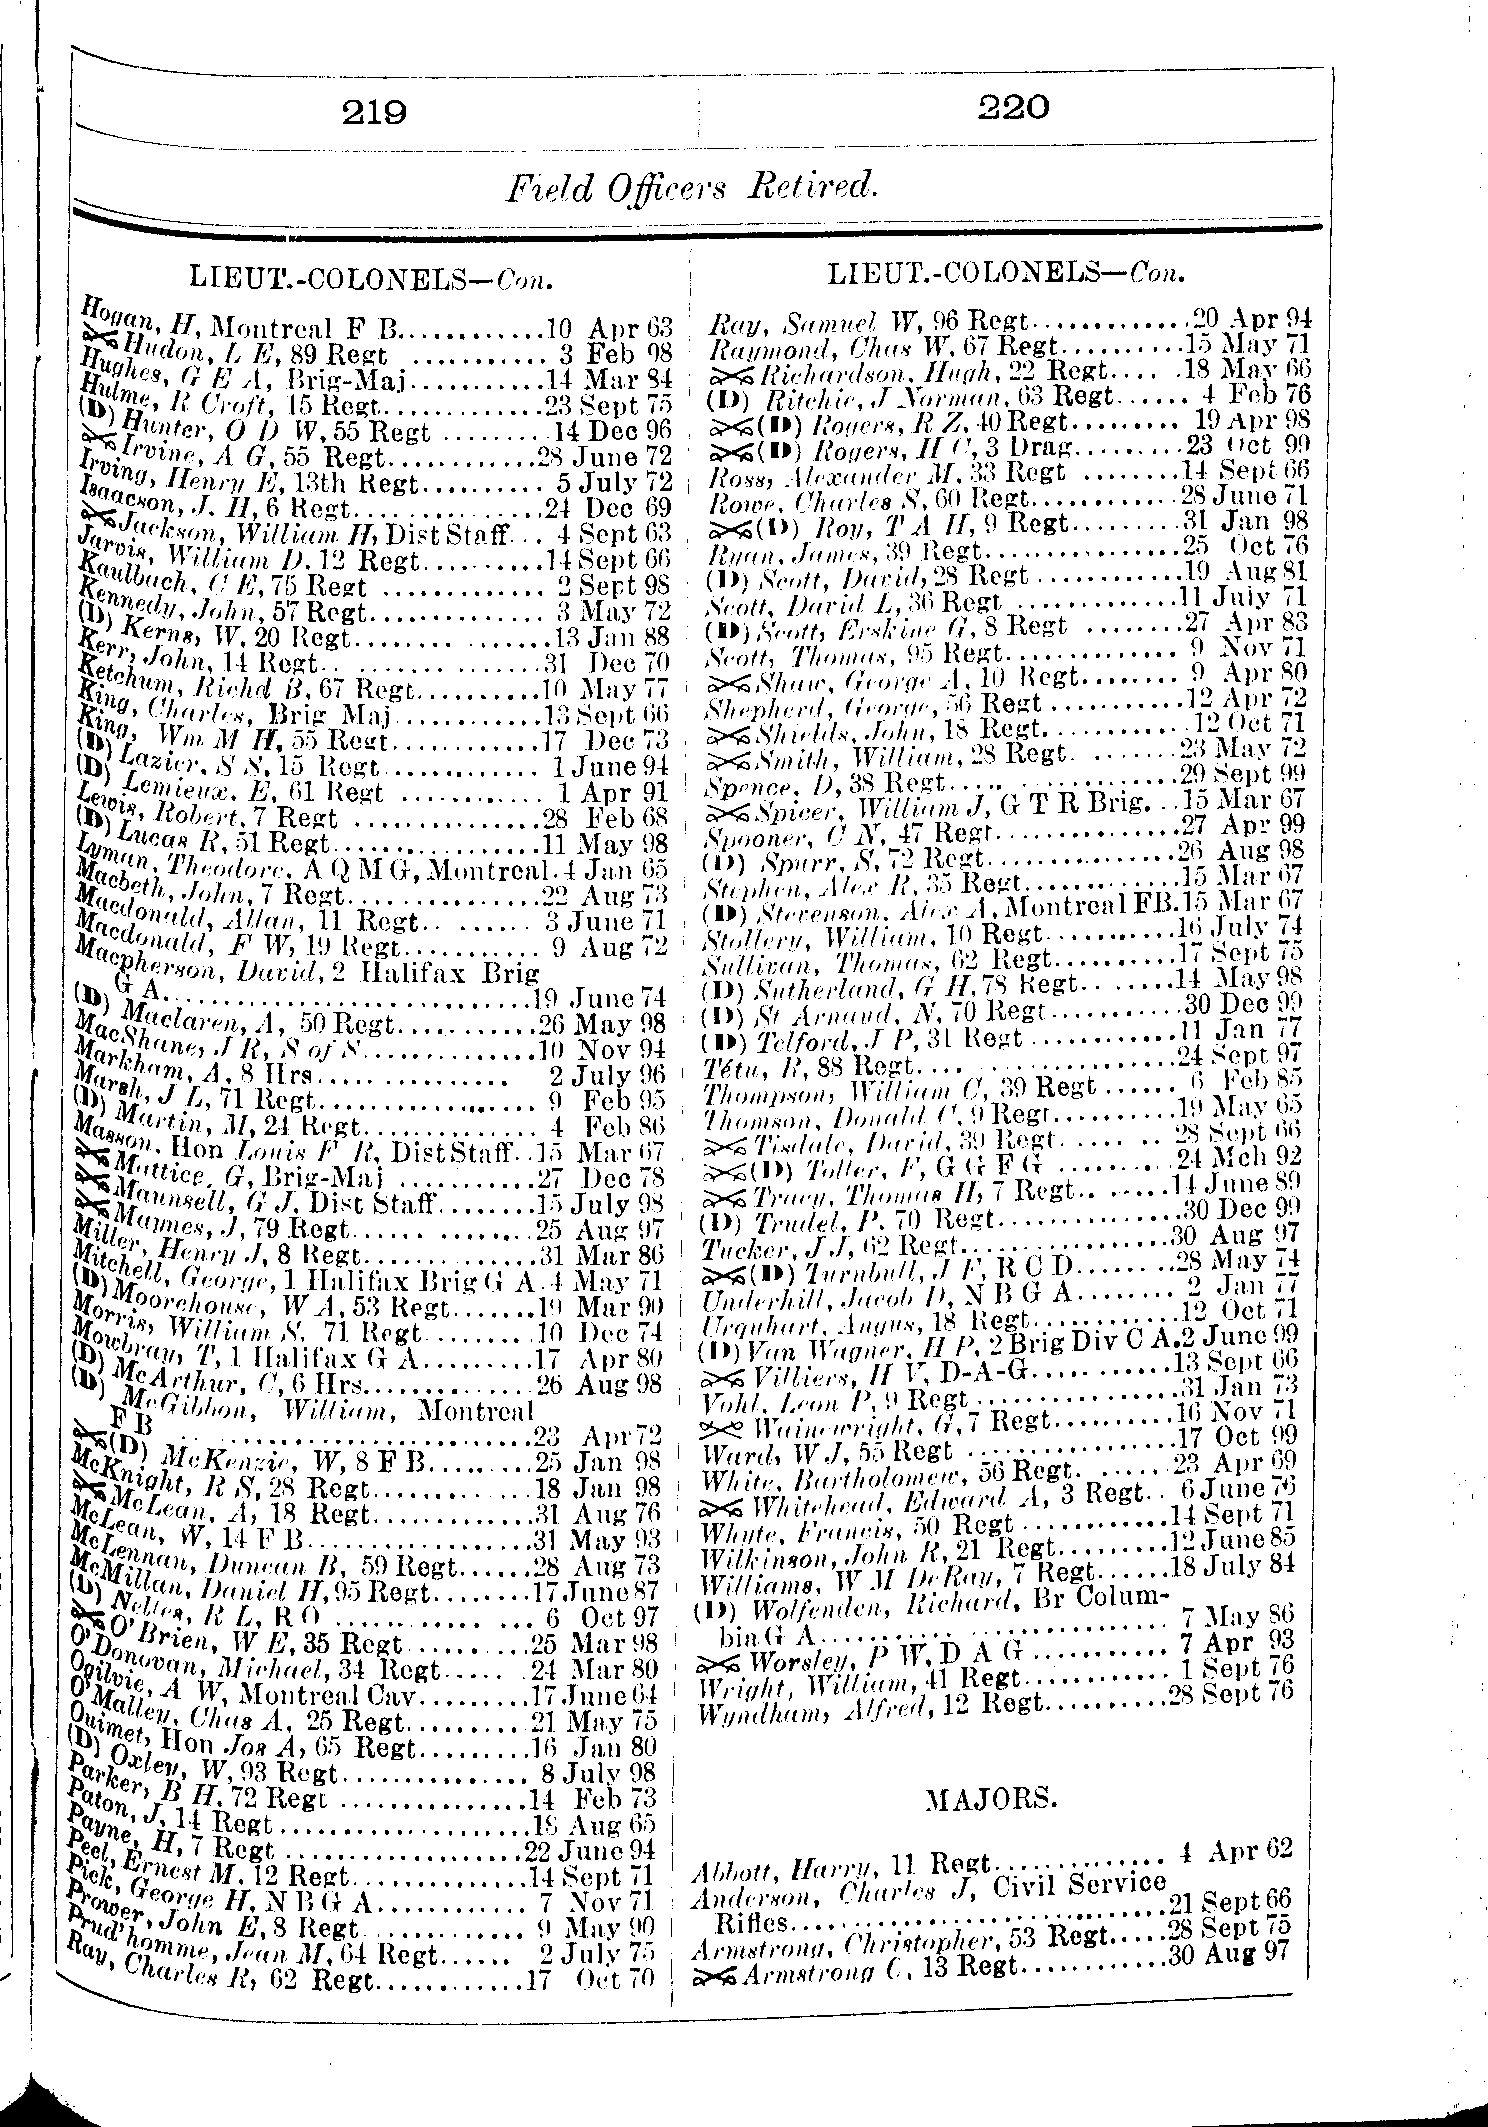 219
220
Field Officers Retired.
LIEUT.-COLONELS—Con.
Hogan, H, Montreal F B............10 Apr 63
Hudon, L E, 89 Regt ........... 3 Feb 98
Hughes, G E A, Brig-Maj...........14 Mar 84
Hulme, R Croft, 15 Regt.............23 Sept 75
(D) Hunter, O D W, 55 Regt .........14 Dec 96
Irvine, A G, 55 Regt.............28 June 72
Irving, Henry E, 13th Regt.......... 5 July 72
Isaacson, J. H, 6 Regt................24 Dec 69
Jackson, William H, Dist Staff... 4 Sept 63
Jarvis, William D, 12 Regt..........14 Sept 66
Kaulbach, C E, 75 Regt ............. 2 Sept 98
Kennedy, John, 57 Regt.............. 3 May 72
(D) Kerns, W, 20 Regt................13 Jan 88
Kerr, John, 14 Regt.. ................31 Dec 70
Ketchum, Richd B, 67 Regt...........10 May 77
King, Charles, Brig Maj.............13 Sept 66
King, Wm M H, 55 Regt.............17 Dec 73
(D) Lazier, S S, 15 Regt............. 1 June 94
(D) Lemieux, E, 61 Regt ............ 1 Apr 91
Lewis, Robert, 7 Regt ...............28 Feb 68
(D) Lucas R, 51 Regt.................11 May 98
Lyman, Theodore, A Q M G, Montreal. 4 Jan 65
Macbeth, John, 7 Regt...............22 Aug 73
Macdonald, Allan, 11 Regt.. ....... 3 June 71
Macdonald, F W, 19 Regt............ 9 Aug 72
Macpherson, David, 2 Halifax Brig
G A................................19 June 74
(D) Maclaren, A, 50 Regt............26 May 98
MacShane, J R, S of S...............10 Nov 94
Markham, A, 8 Hrs................. 2 July 96
Marsh, J L, 71 Regt................. 9 Feb 95
(D) Martin, M, 24 Regt.............. 4 Feb 86
Masson, Hon Louis F R, Dist Staff..15 Mar 67
Mattice, G, Brig-Maj .............27 Dec 78
Maunsell, G J, Dist Staff........15 July 98
Mannes, J, 79 Regt...............25 Aug 97
Miller, Henry J, 8 Regt..............31 Mar 86
Mitchell, George, 1 Halifax Brig G A. 4 May 71
(D) Moorehouse, W A, 53 Regt.......19 Mar 90
Morris, William S, 71 Regt.........10 Dec 74
Mowbray, T, 1 Halifax G A.........17 Apr 80
(D) McArthur, C, 6 Hrs.............26 Aug 98
(D) McGibbon, William, Montreal
F B ..............................23 Apr 72
(D) McKenzie, W, 8 F B.........25 Jan 98
McKnight, R S, 28 Regt.............18 Jan 98
McLean, A, 18 Regt.............31 Aug 76
McLean, W, 14 F B..................31 May 93
McLennan, Duncan B, 59 Regt.......28 Aug 73
McMillan, Daniel H, 95 Regt.........17 June 87
(D) Nelles, R L, R O ................ 6 Oct 97
O'Brien, W E, 35 Regt...........25 Mar 98
O'Donovan, Michael, 34 Regt..... ..24 Mar 80
Ogilvie, A W, Montreal Cav.........17 June 64
O'Malley, Chas A, 25 Regt...........21 May 75
Ouimet, Hon Jos A, 65 Regt.........16 Jan 80
(D) Oxley, W, 93 Regt............... 8 July 98
Parker, B H, 72 Regt ...............14 Feb 73
Paton, J, 14 Regt....................18 Aug 65
Payne, H, 7 Regt ...................22 June 94
Peel, Ernest M, 12 Regt..............14 Sept 71
Pick, George H, N B G A............ 7 Nov 71
Prower, John E, 8 Regt.............. 9 May 90
Prud'homme, Jean M, 64 Regt...... 2 July 75
Ray, Charles R, 62 Regt.............17 Oct 70
LIEUT.-COLONELS—Con.
Ray, Samuel W, 96 Regt.............20 Apr 94
Raymond, Chas W, 67 Regt..........15 May 71
Richardson, Hugh, 22 Regt.... .18 May 66
(D) Ritchie, J Norman, 63 Regt...... 4 Feb 76
(D) Rogers, R Z, 40 Regt......... 19 Apr 98
(D) Rogers, H C, 3 Drag.........23 Oct 99
Ross, Alexander M, 33 Regt ........14 Sept 66
Rowe, Charles S, 60 Regt............28 June 71
(D) Roy, T A H, 9 Regt.........31 Jan 98
Ryan, James, 39 Regt................25 Oct 76
(D) Scott, David, 28 Regt............19 Aug 81
Scott, David L, 36 Regt .............11 July 71
(D) Scott, Erskine G, 8 Regt ........27 Apr 83
Scott, Thomas, 95 Regt.............. 9 Nov 71
Shaw, George A, 10 Regt........ 9 Apr 80
Shepherd, George, 56 Regt ...........12 Apr 72
Shields, John, 18 Regt............12 Oct 71
Smith, William, 28 Regt. .......23 May 72
Spence, D, 38 Regt..... .............29 Sept 99
Spicer, William J, G T R Brig. ..15 Mar 67
Spooner, C N, 47 Regt...............27 Apr 99
(D) Spurr, S, 72 Regt................26 Aug 98
Stephen, Alex R, 35 Regt.............15 Mar 67
(D) Stevenson, Alex A, Montreal FB.15 Mar 67
Stollery, William, 10 Regt...........16 July 74
Sullivan, Thomas, 62 Regt..........17 Sept 75
(D) Sutherland, G H, 78 Regt........14 May 98
(D) St Arnaud, N, 70 Regt...........30 Dec 99
(D) Telford, J P, 31 Regt ............11 Jan 77
Tétu, R, 88 Regt.... .................24 Sept 97
Thompson, William C, 39 Regt...... 6 Feb 85
Thomson, Donald C, 9 Regt..........19 May 65
Tisdale, David, 39 Regt...... ..28 Sept 66
(D) Toller, F, G G F G ..........24 Mch 92
Tracy, Thomas H, 7 Regt.. ......14 June 89
(D) Trudel, P, 70 Regt...............30 Dec 99
Tucker, J J, 62 Regt..................30 Aug 97
(D) Turnbull, J F, R C D........28 May 74
Underhill, Jacob D, N B G A........ 2 Jan 77
Urquhart, Angus, 18 Regt............12 Oct 71
(D) Van Wagner, H P, 2 Brig Div C A. 2 June 99
Villiers, H V, D-A-G.............13 Sept 66
Vohl, Leon P, 9 Regt.................31 Jan 73
Wainewright, G, 7 Regt..........16 Nov 71
Ward, W J, 55 Regt .................17 Oct 99
White, Bartholomew, 56 Regt. ......23 Apr 69
Whitehead, Edward A, 3 Regt.. 6 June 76
Whyte, Francis, 50 Regt............14 Sept 71
Wilkinson, John R, 21 Regt.........12 June 85
Williams, W M DeRay, 7 Regt......18 July 84
(D) Wolfenden, Richard, Br Colum-
bia G A............................ 7 May 86
Worsley, P W, D A G.......... 7 Apr 93
Wright, William, 41 Regt........... 1 Sept 76
Wyndham, Alfred, 12 Regt..........28 Sept 76
MAJORS.
Abbott, Harry, 11 Regt.............. 4 Apr 62
Anderson, Charles J, Civil Service
Rifles.............................21 Sept 66
Armstrong, Christopher, 53 Regt.....28 Sept 75
Armstrong C, 13 Regt............30 Aug 97